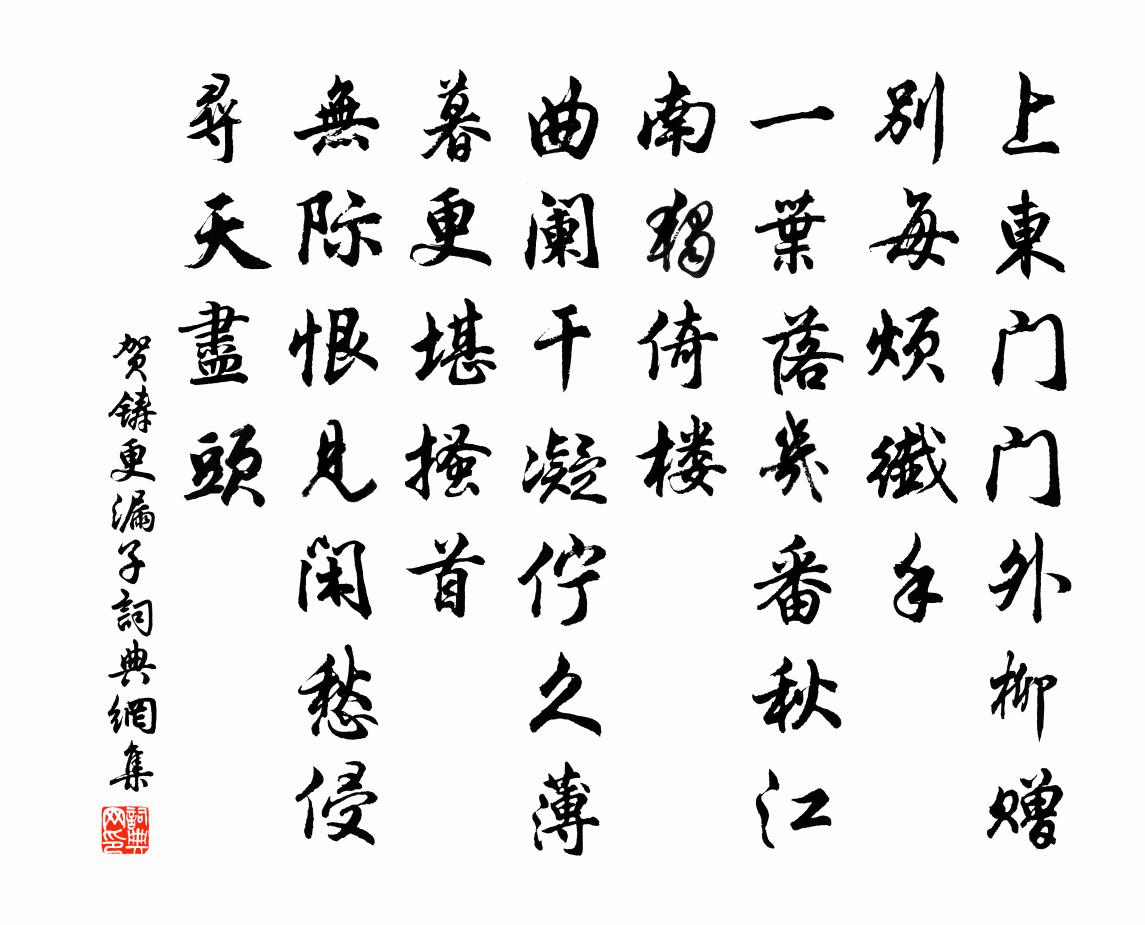 上東门门外柳赠
别每烦纖手
一葉落幾番秋江
南獨倚楼
曲阑干凝佇久薄
暮更堪搔首
無际恨見閑愁侵
尋天盡頭
贺铸更漏子詞典網集
詞典网印